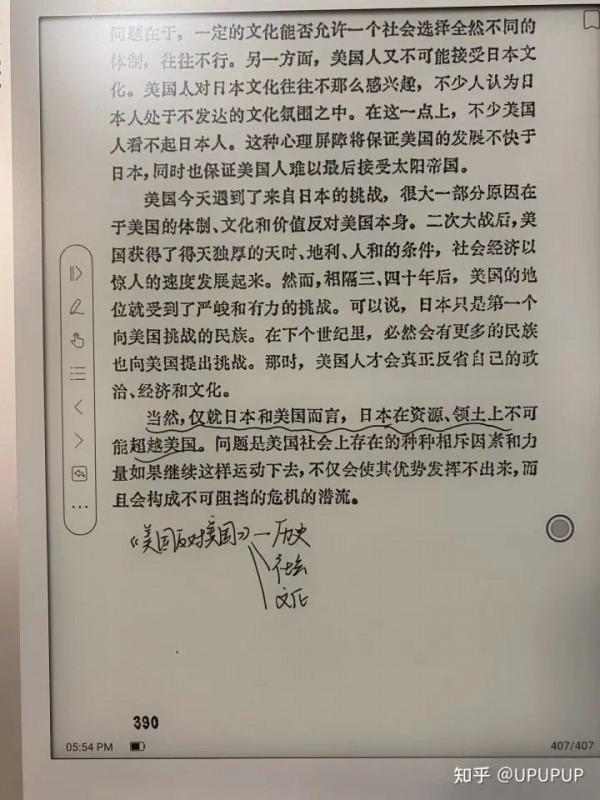 问题在于，一定的文化能否允许一个社会选择全然不同的
体制，往往不行。另一方面，美国人又不可能接受日本文
化。美国人对日本文化往往不那么感兴趣，不少人认为日
本人处于不发达的文化氛围之中。在这一点上，不少美国
人看不起日本人。这种心理屏障将保证美国的发展不快于
日本，同时也保证美国人难以最后接受太阳帝国。
美国今天遇到了来自日本的挑战，很大一部分原因在
于美国的体制、文化和价值反对美国本身。二次大战后，美
国获得了得天独厚的天时、地利、人和的条件，社会经济以
惊人的速度发展起来。然而，相隔三、四十年后，美国的地
位就受到了严峻和有力的挑战。可以说，日本只是第一个
向美国挑战的民族。在下个世纪里，必然会有更多的民族
也向美国提出挑战。那时，美国人才会真正反省自己的政
治、经济和文化。
当然，仅就日本和美国而言，日本在资源、领土上不可
能超越美国。问题是美国社会上存在的种种相斥因素和力
量如果继续这样运动下去，不仅会使其优势发挥不出来，而
且会构成不可阻挡的危机的潜流。
《美国反对美国》一历史
社会
文化
390
05:54 PM
407/407
知乎 @UPUPUP